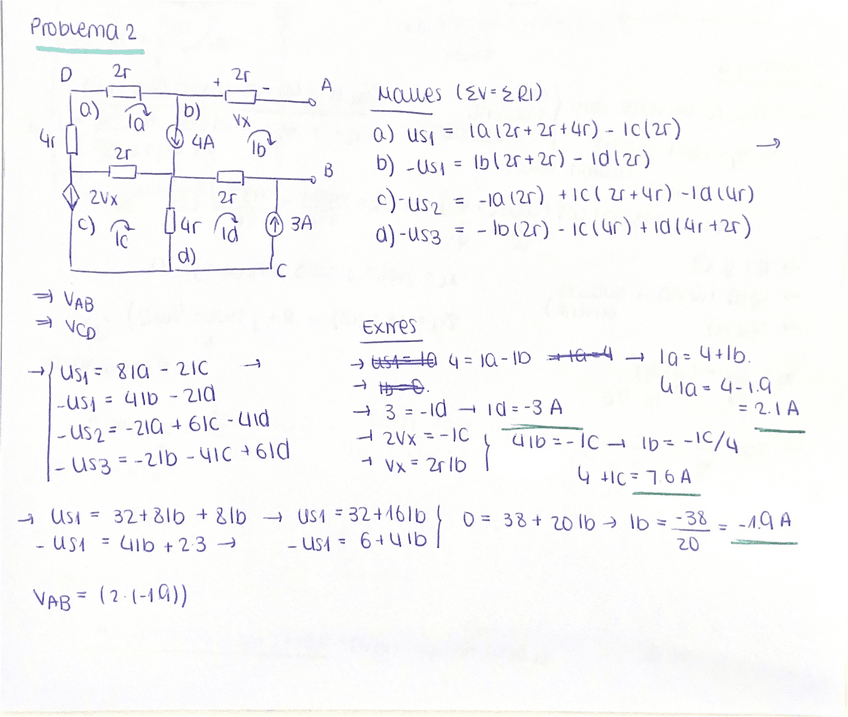 Problema 2
D
2r
+ 2r -
A
a)
Ia
b)
Vx
4r
4A
Ib
2r
B
2Vx
2r
c)
Ic
4r
Id
3A
d)
C
⇒ VAB
⇒ VCD
Malles (ΣV=ΣRI)
a) us1 = Ia(2r+2r+4r) - Ic(2r) →
b) -us1 = Ib(2r+2r) - Id(2r)
c) -us2 = -Ia(2r) + Ic(2r+4r) - Id(4r)
d) -us3 = -Ib(2r) - Ic(4r) + Id(4r+2r)
→ us1 = 8Ia - 2Ic →
-us1 = 4Ib - 2Id
-us2 = -2Ia + 6Ic - 4Id
-us3 = -2Ib - 4Ic + 6Id
Extres
→ us1 = Ia 4 = Ia - Ib → Ia = 4 → Ia = 4+Ib.
→ Ib = 0.
↳ Ia = 4 - 1.9
= 2.1 A
→ 3 = -Id → Id = -3 A
→ 2Vx = -Ic
→ Vx = 2rIb
4Ib = -Ic → Ib = -Ic/4
↳ Ic = 7.6 A
→ us1 = 32 + 8Ib + 8Ib → us1 = 32 + 16Ib
-us1 = 4Ib + 2·3 → -us1 = 6 + 4Ib
0 = 38 + 20Ib → Ib = -38/20 = -1.9 A
VAB = (2·(-1.9))